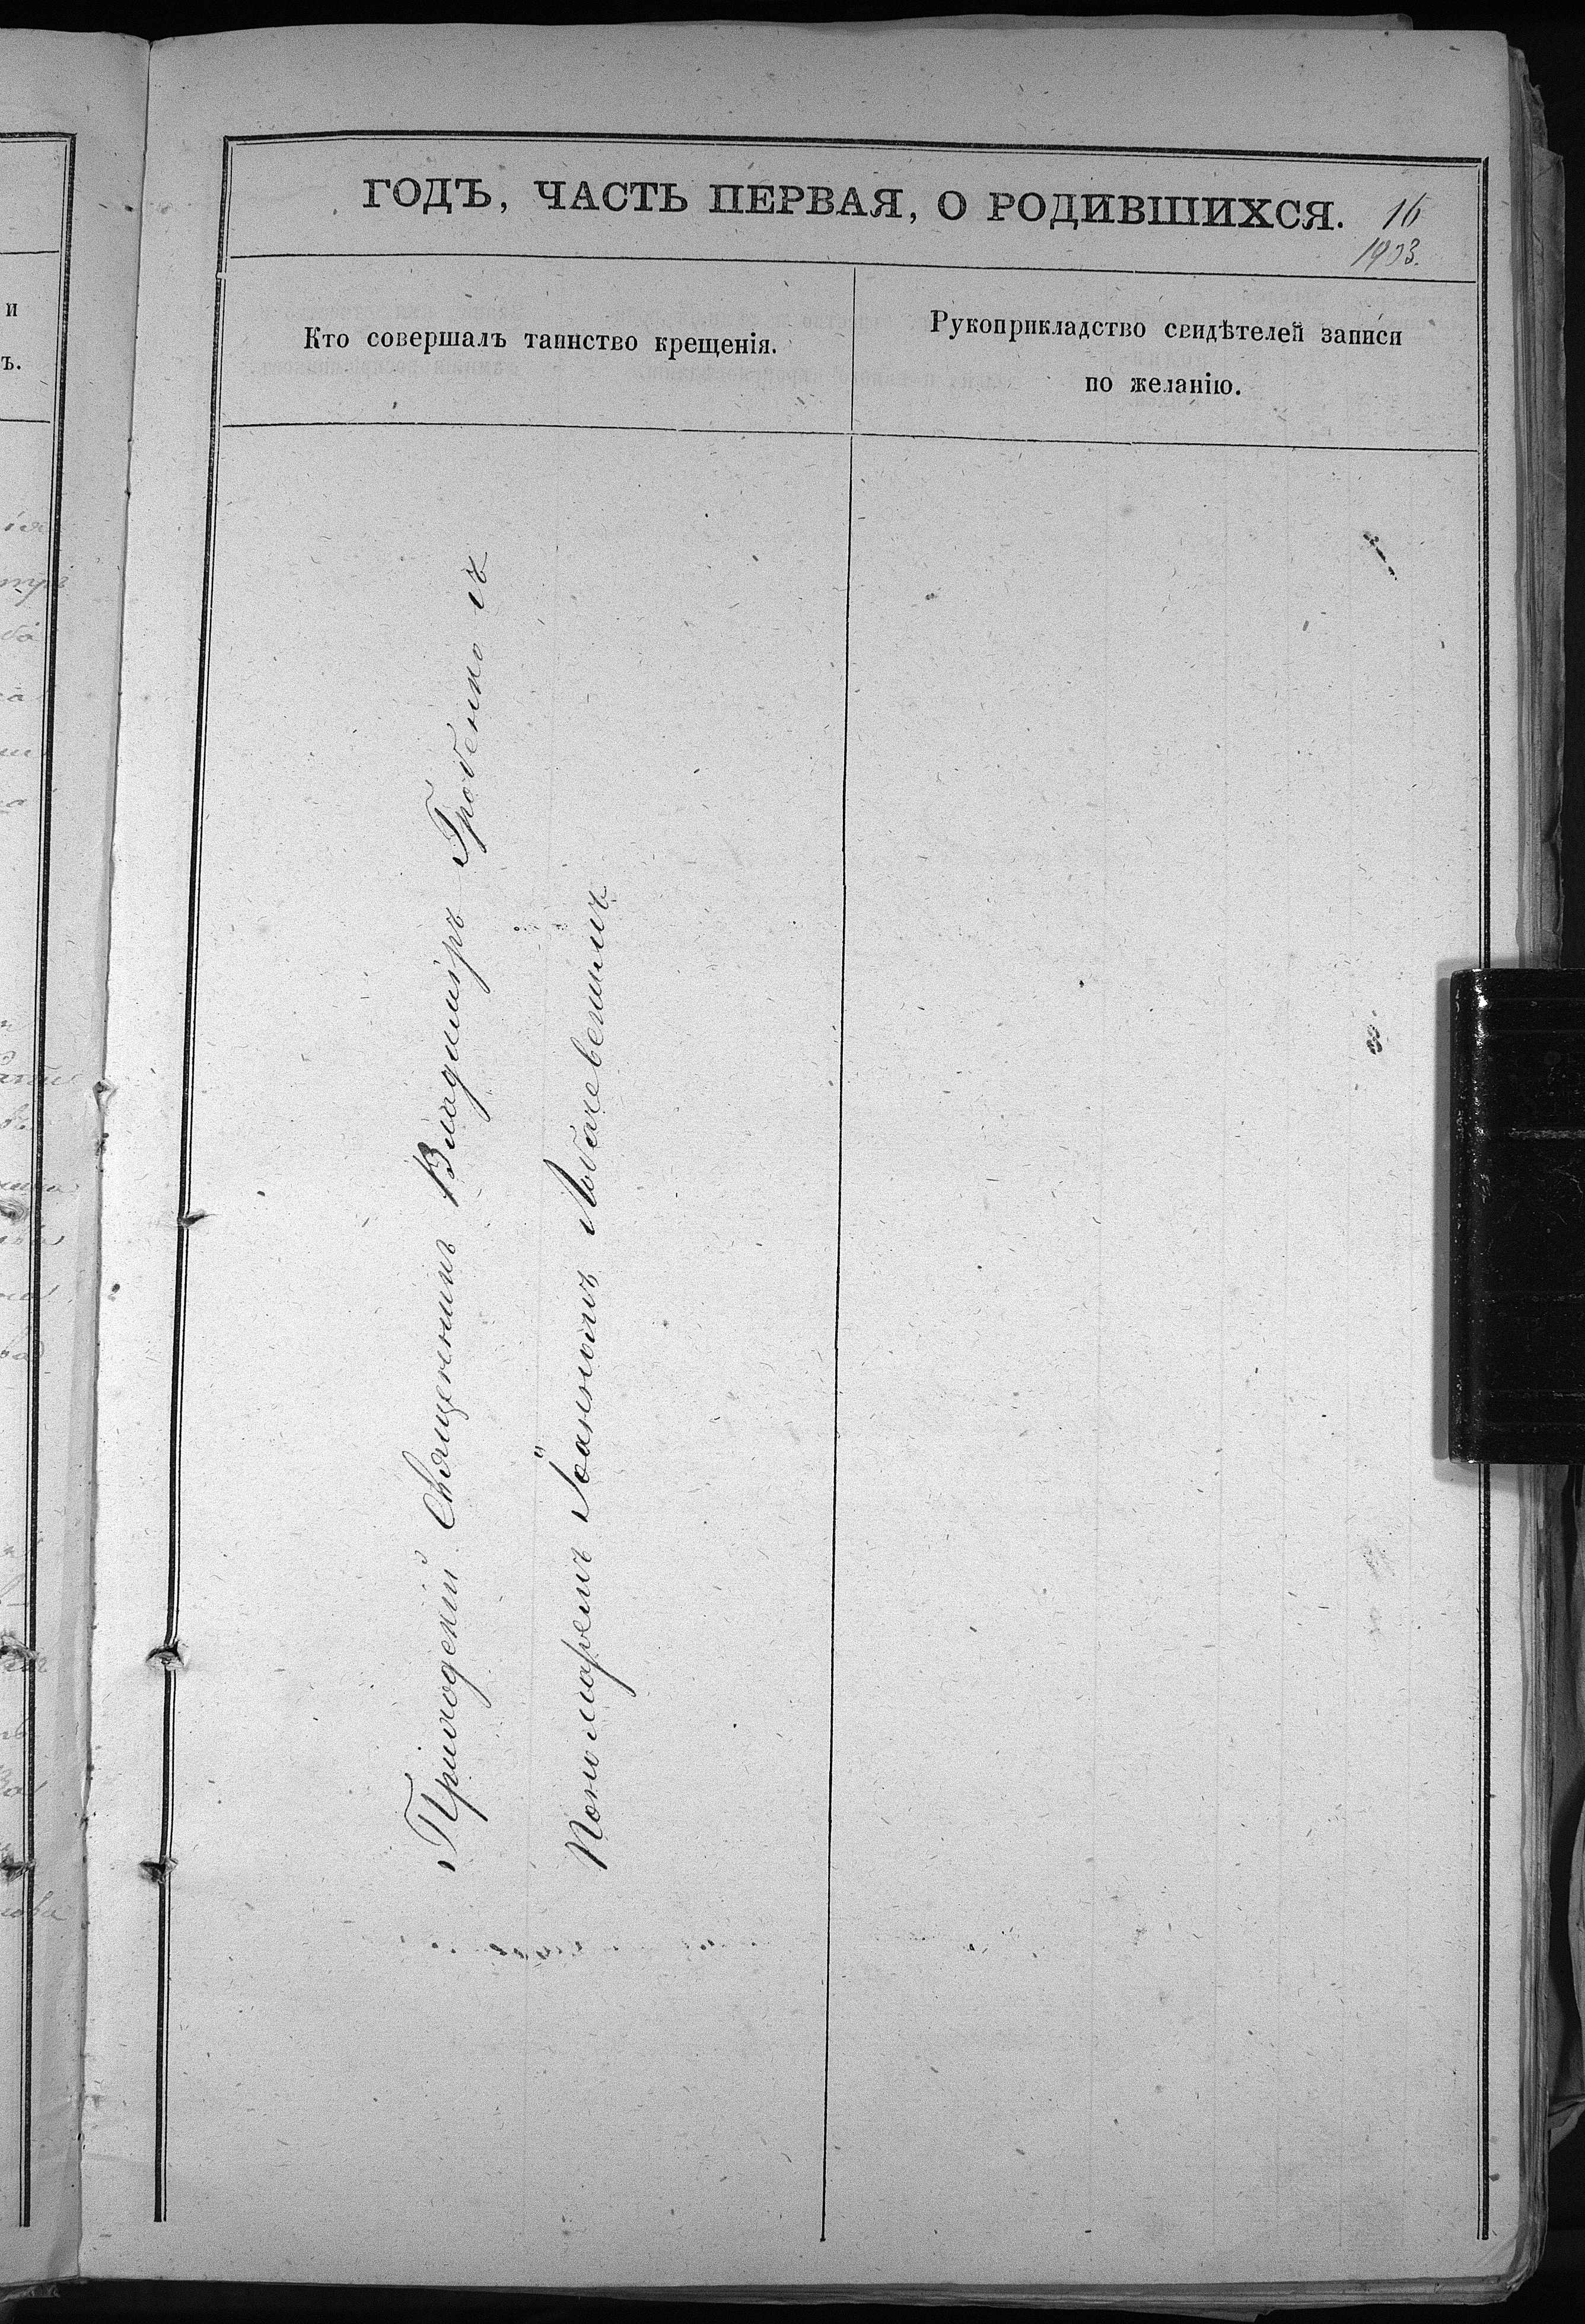 ГОДЪ, ЧАСТЬ ПЕРВАЯ, О РОДИВШИХСЯ.
16
1903.
Кто совершалъ таинство крещенія.
Рукоприкладство свидѣтелей записи
по желанію.
Приходскій Священникъ Владимиръ Гробенко съ
Пономаремъ Іоанномъ Лобачевскимъ
и
ъ.